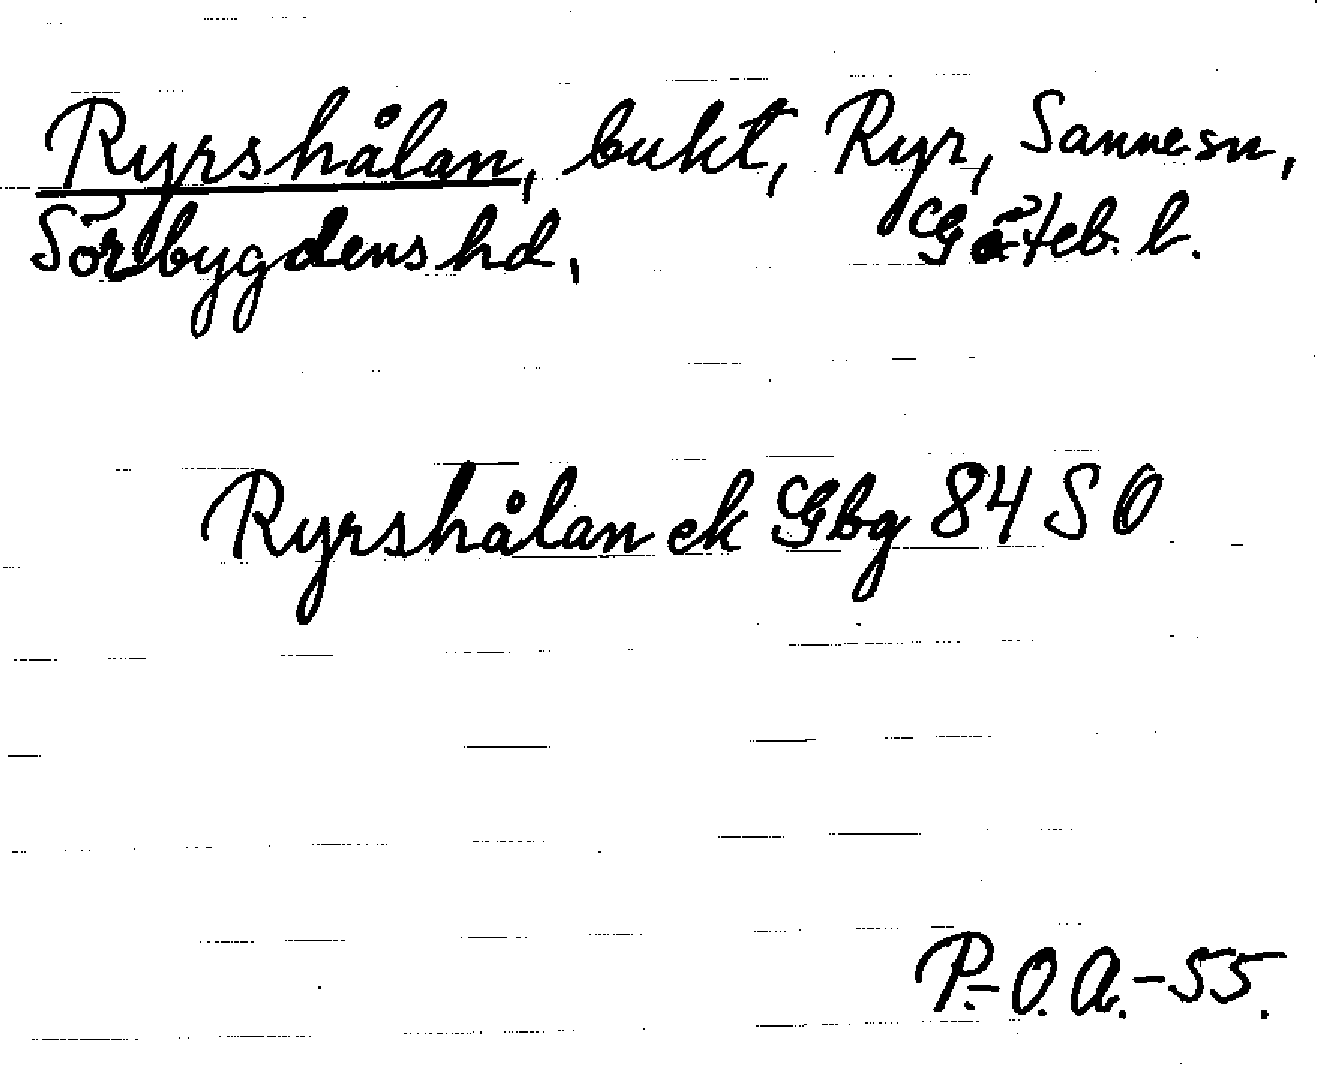 Ryrshålan, bukt, Ryr, Sannesn,
Sörbygdens hd. Göteb. l.
Ryrshålan ek Gbg 84 SO
P.-O.A.-55.